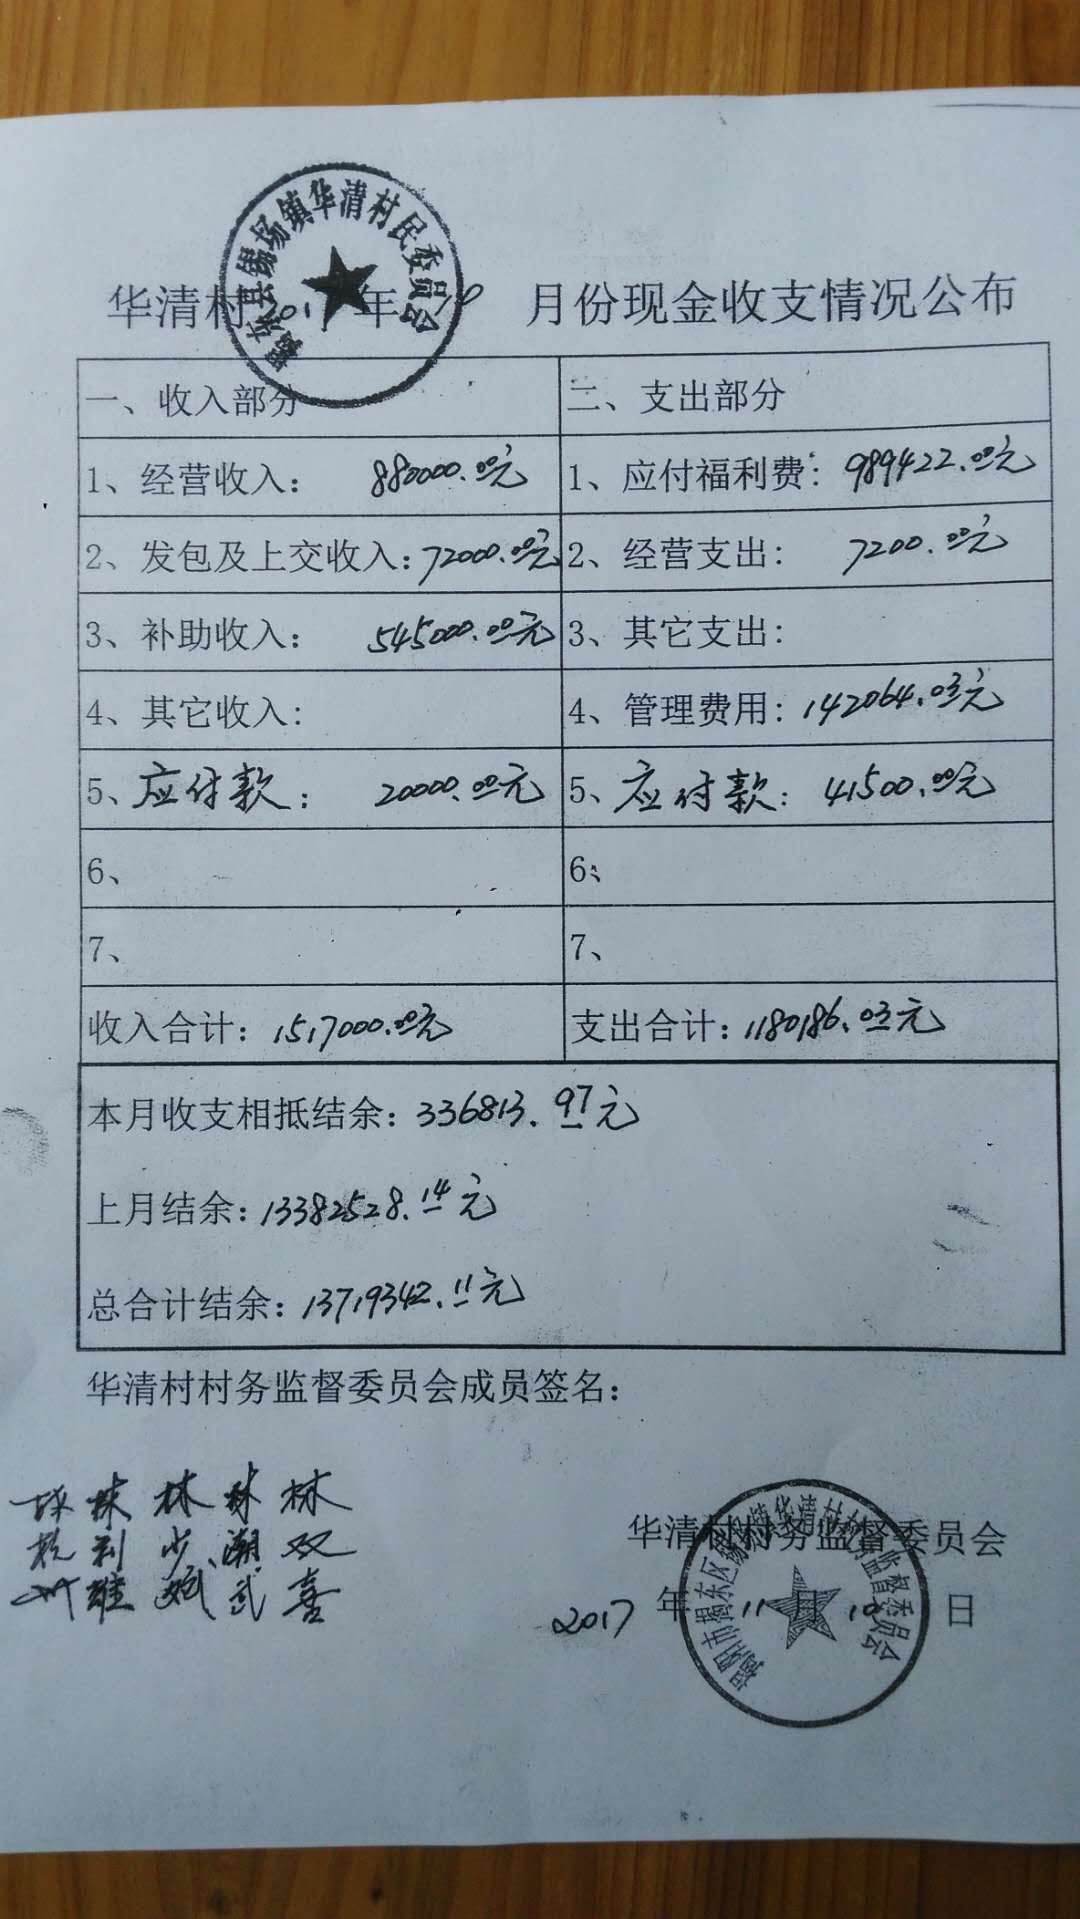 揭东县锡场镇华清村民委员会
华清村2017年10月份现金收支情况公布
一、收入部分 二、支出部分
1、经营收入： 880000.00元 1、应付福利费：989422.00元
2、发包及上交收入：72000.00元 2、经营支出： 7200.00元
3、补助收入： 545000.00元 3、其它支出：
4、其它收入： 4、管理费用：142064.03元
5、应付款： 20000.00元 5、应付款：41500.00元
6、 6、
7、 7、
收入合计：1517000.00元 支出合计：1180186.03元
本月收支相抵结余：336813.97元
上月结余：13382528.14元
总合计结余：13719342.11元
华清村村务监督委员会成员签名：
林 林 林 林
利 少 潮 双
雄 斌 武 喜
华清村村务监督委员会
2017年11月10日
揭阳市揭东区锡场镇华清村村务监督委员会